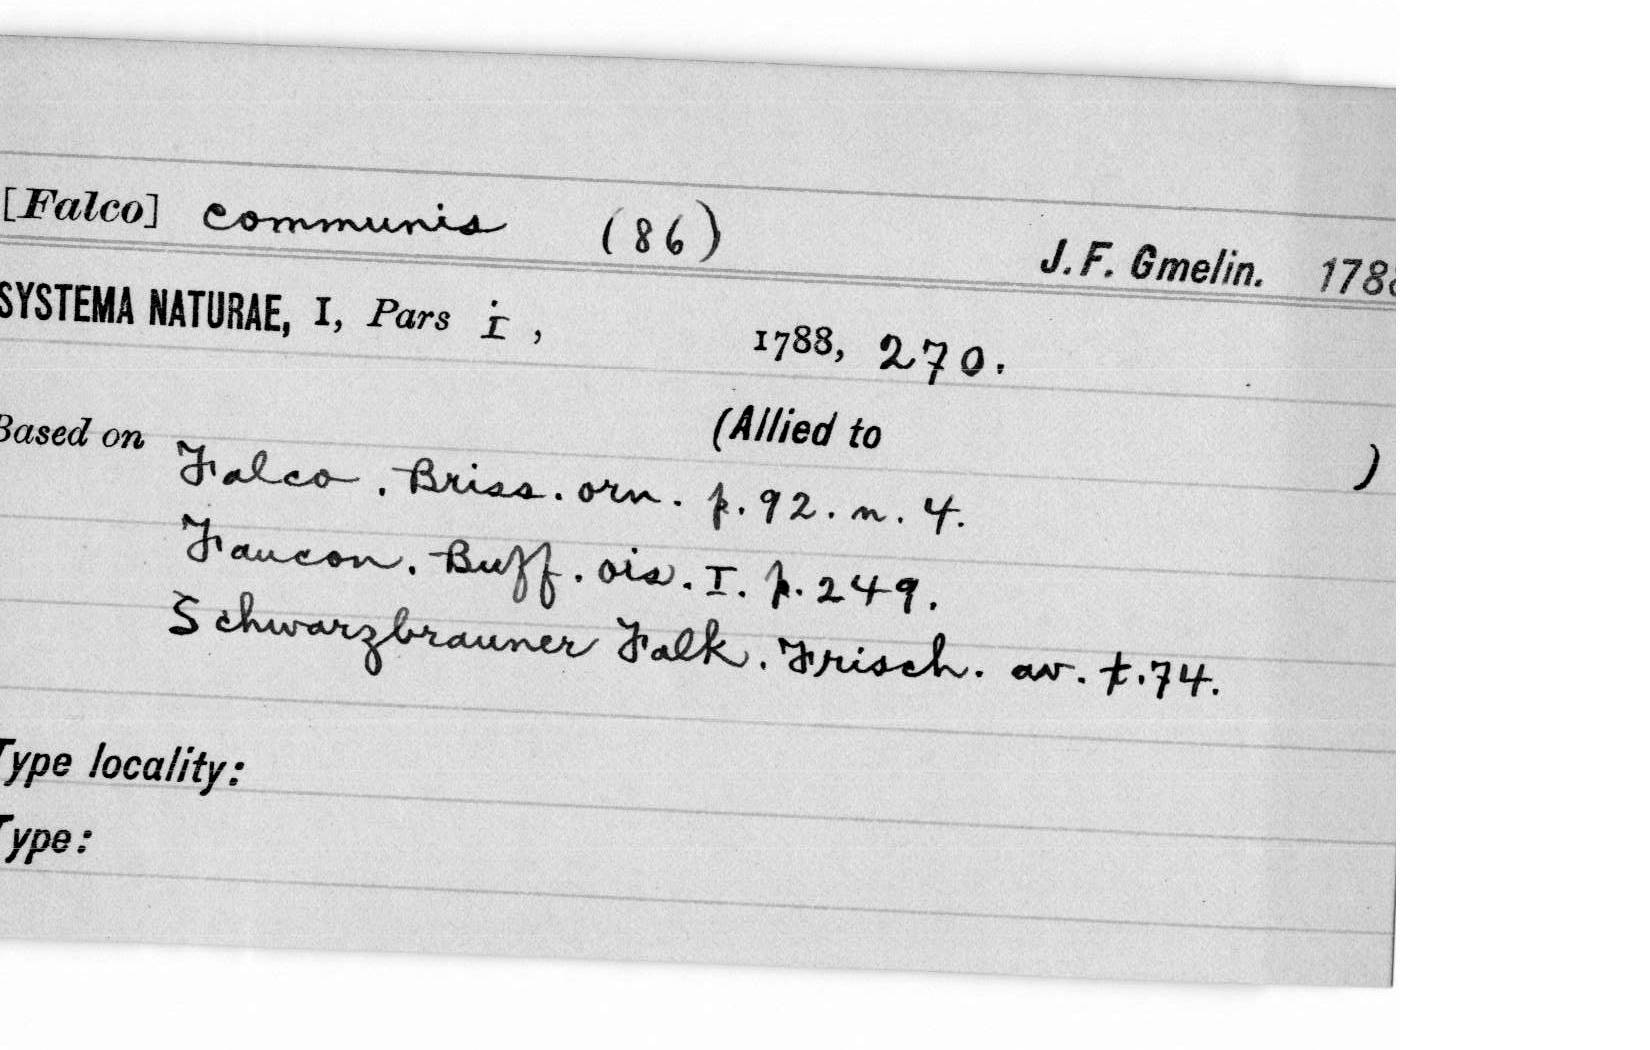 [Falco] communis (86) J. F. Gmelin. 1788
SYSTEMA NATURAE, I, Pars i, 1788, 270.
(Allied to )
Based on
Falco. Briss. orn. p. 92. n. 4.
Faucon. Buff. ois. I. p. 249.
Schwarzbrauner Falk. Frisch. av. t. 74.
Type locality:
Type: